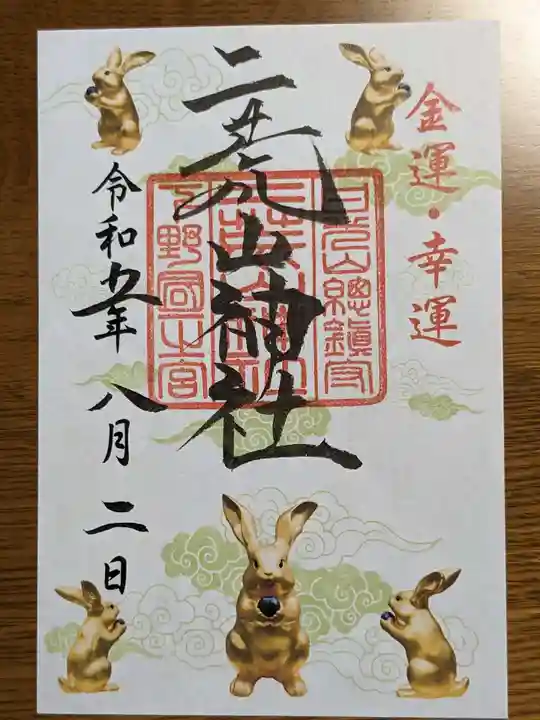 金運・幸運
日光山總鎮守
二荒山神社
下野國一之宮
二荒山神社
令和五年 八月 二日